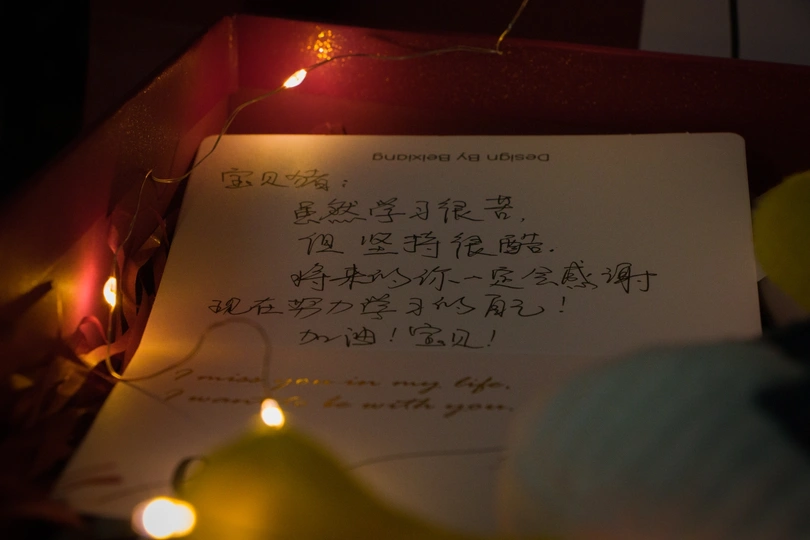 Design By Beixiang
宝贝猪：
虽然学习很苦，
但坚持很酷.
将来的你一定会感谢
现在努力学习的自己！
加油！宝贝！
I miss you in my life.
I want to be with you.